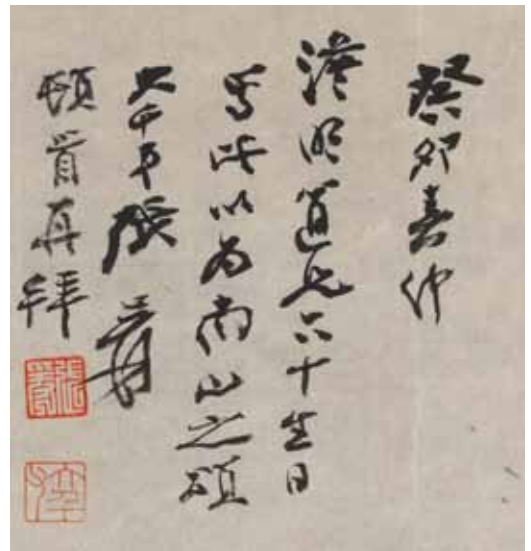 癸卯春仲
漢明道兄六十生日
寫此以為南山之頌
大千弟張爰
頓首再拜
張爰